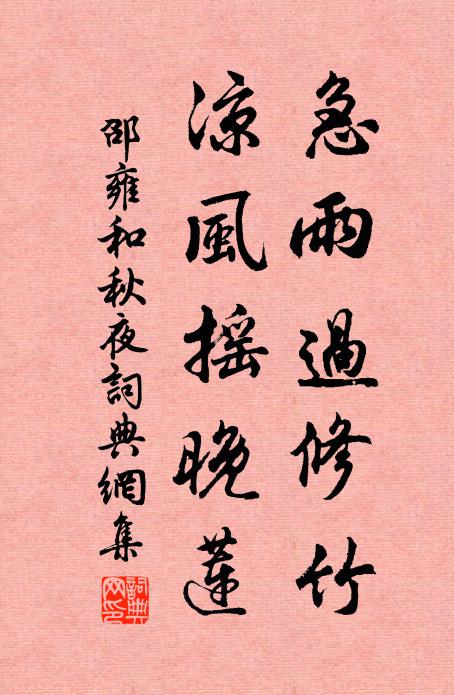 急雨過修竹
涼風摇晚蓮
邵雍和秋夜詞典網集
詞典網印